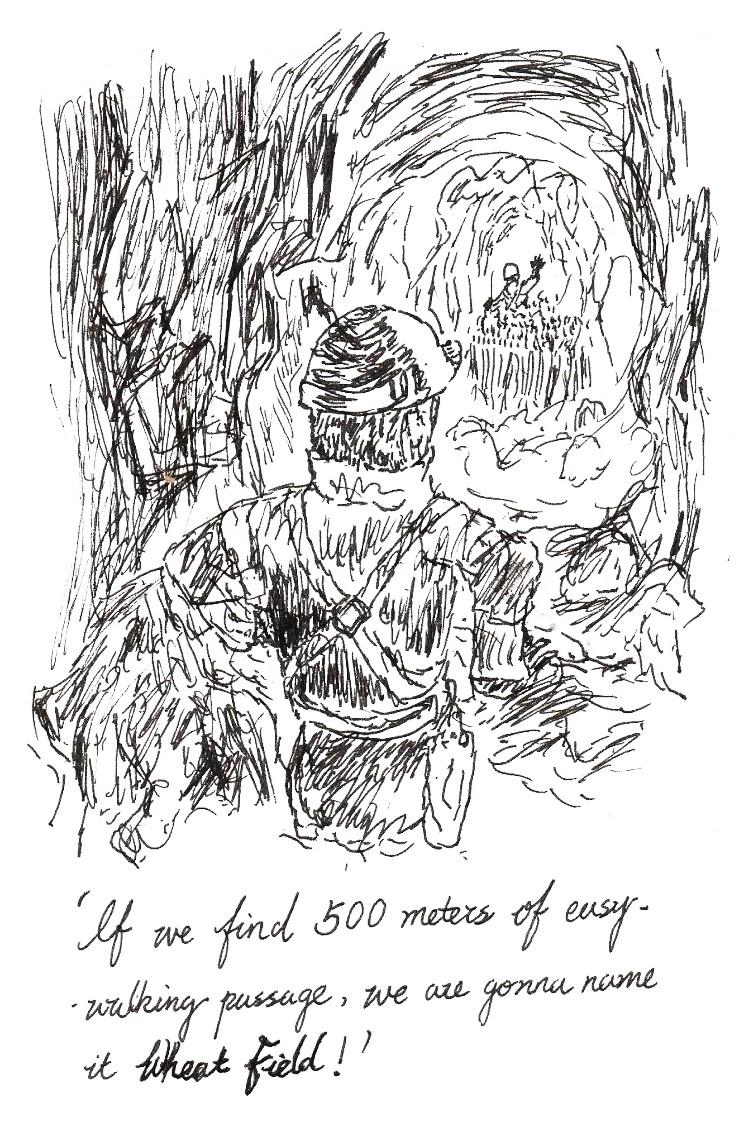 'If we find 500 meters of easy-
-walking passage, we are gonna name
it Wheat Field!'